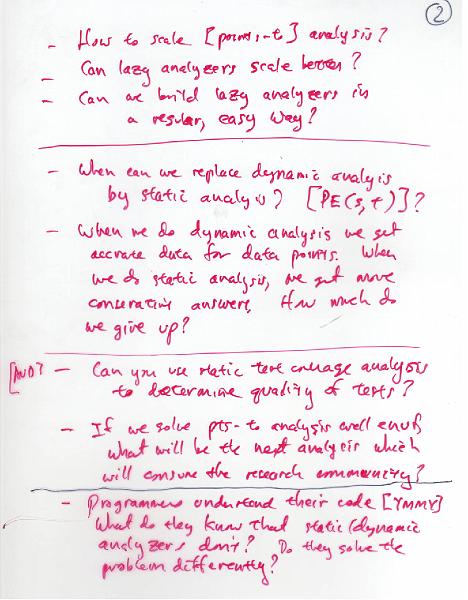 2
- How to scale [points-t] analysis?
- Can lazy analyzers scale better?
- Can we build lazy analyzers in
a regular, easy way?
- When can we replace dynamic analysis
by static analysis? [PE(s,t)]?
- When we do dynamic analysis we get
accurate data for data points. When
we do static analysis, we get more
conservative answers. How much do
we give up?
- Can you use static test coverage analysis
to determine quality of tests?
- If we solve pts-to analysis well enuf,
what will be the next analysis which
will consume the research community?
- Programmers understand their code [YMMV]
What do they know that static/dynamic
analyzers don't? Do they solve the
problem differently?